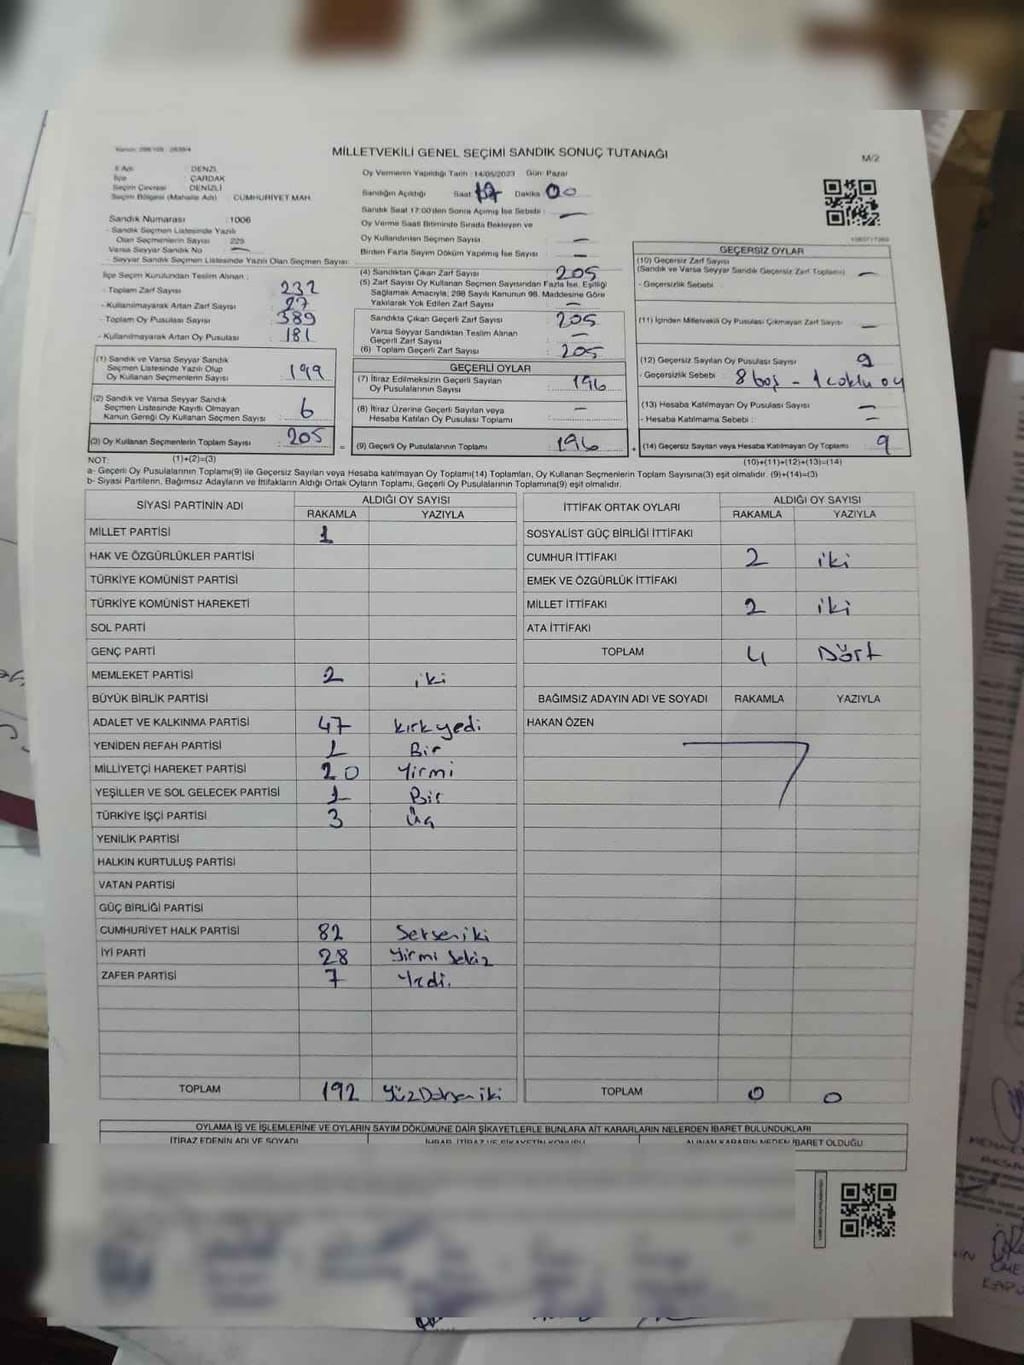 MİLLETVEKİLİ GENEL SEÇİMİ SANDIK SONUÇ TUTANAĞI
M/2
İl Adı : DENİZLİ
İlçe : ÇARDAK
Seçim Çevresi : DENİZLİ
Seçim Bölgesi (Mahalle Adı) CUMHURİYET MAH.
Sandık Numarası : 1006
- Sandık Seçmen Listesinde Yazılı
Olan Seçmenlerin Sayısı 229
Varsa Seyyar Sandık No —
- Seyyar Sandık Seçmen Listesinde Yazılı Olan Seçmen Sayısı:
Oy Vermenin Yapıldığı Tarih : 14/05/2023 Gün: Pazar
Sandığın Açıldığı Saat: 17 Dakika 00
Sandık Saat 17:00'den Sonra Açılmış İse Sebebi : —
Oy Verme Saati Bitiminde Sırada Bekleyen ve
Oy Kullandırılan Seçmen Sayısı —
Birden Fazla Sayım Döküm Yapılmış İse Sayısı : —
İlçe Seçim Kurulundan Teslim Alınan :
- Toplam Zarf Sayısı : 232
- Kullanılmayarak Artan Zarf Sayısı : 27
- Toplam Oy Pusulası Sayısı : 389
- Kullanılmayarak Artan Oy Pusulası : 181
(1) Sandık ve Varsa Seyyar Sandık
Seçmen Listesinde Yazılı Olup
Oy Kullanan Seçmenlerin Sayısı : 199
(2) Sandık ve Varsa Seyyar Sandık
Seçmen Listesinde Kayıtlı Olmayan
Kanun Gereği Oy Kullanan Seçmen Sayısı : 6
(3) Oy Kullanan Seçmenlerin Toplam Sayısı : 205 =
(4) Sandıktan Çıkan Zarf Sayısı : 205
(5) Zarf Sayısı Oy Kullanan Seçmen Sayısından Fazla İse, Eşitliği
Sağlamak Amacıyla, 298 Sayılı Kanunun 98. Maddesine Göre
Yakılarak Yok Edilen Zarf Sayısı —
Sandıkta Çıkan Geçerli Zarf Sayısı : 205
Varsa Seyyar Sandıktan Teslim Alınan
Geçerli Zarf Sayısı —
(6) Toplam Geçerli Zarf Sayısı : 205
GEÇERLİ OYLAR
(7) İtiraz Edilmeksizin Geçerli Sayılan
Oy Pusulalarının Sayısı : 196
(8) İtiraz Üzerine Geçerli Sayılan veya
Hesaba Katılan Oy Pusulası Toplamı : —
(9) Geçerli Oy Pusulalarının Toplamı : 196 +
GEÇERSİZ OYLAR
(10) Geçersiz Zarf Sayısı
(Sandık ve Varsa Seyyar Sandık Geçersiz Zarf Toplamı) : —
- Geçersizlik Sebebi :
(11) İçinden Milletvekili Oy Pusulası Çıkmayan Zarf Sayısı : —
(12) Geçersiz Sayılan Oy Pusulası Sayısı : 9
- Geçersizlik Sebebi : 8 boş - 1 çoklu oy
(13) Hesaba Katılmayan Oy Pusulası Sayısı : —
- Hesaba Katılmama Sebebi : —
(14) Geçersiz Sayılan veya Hesaba Katılmayan Oy Toplamı : 9
NOT: (1)+(2)=(3) (10)+(11)+(12)+(13)=(14)
a- Geçerli Oy Pusulalarının Toplamı(9) ile Geçersiz Sayılan veya Hesaba katılmayan Oy Toplamı(14) Toplamları, Oy Kullanan Seçmenlerin Toplam Sayısına(3) eşit olmalıdır. (9)+(14)=(3)
b- Siyasi Partilerin, Bağımsız Adayların ve İttifakların Aldığı Ortak Oyların Toplamı, Geçerli Oy Pusulalarının Toplamına(9) eşit olmalıdır.
SİYASİ PARTİNİN ADI ALDIĞI OY SAYISI
RAKAMLA YAZIYLA
MİLLET PARTİSİ 1
HAK VE ÖZGÜRLÜKLER PARTİSİ
TÜRKİYE KOMÜNİST PARTİSİ
TÜRKİYE KOMÜNİST HAREKETİ
SOL PARTİ
GENÇ PARTİ
MEMLEKET PARTİSİ 2 iki
BÜYÜK BİRLİK PARTİSİ
ADALET VE KALKINMA PARTİSİ 47 kırkyedi
YENİDEN REFAH PARTİSİ 1 Bir
MİLLİYETÇİ HAREKET PARTİSİ 20 Yirmi
YEŞİLLER VE SOL GELECEK PARTİSİ 1 Bir
TÜRKİYE İŞÇİ PARTİSİ 3 Üç
YENİLİK PARTİSİ
HALKIN KURTULUŞ PARTİSİ
VATAN PARTİSİ
GÜÇ BİRLİĞİ PARTİSİ
CUMHURİYET HALK PARTİSİ 82 Seksen iki
İYİ PARTİ 28 Yirmi Sekiz
ZAFER PARTİSİ 7 Yedi.
TOPLAM 192 YüzDoksan iki
İTTİFAK ORTAK OYLARI ALDIĞI OY SAYISI
RAKAMLA YAZIYLA
SOSYALİST GÜÇ BİRLİĞİ İTTİFAKI
CUMHUR İTTİFAKI 2 iki
EMEK VE ÖZGÜRLÜK İTTİFAKI
MİLLET İTTİFAKI 2 iki
ATA İTTİFAKI
TOPLAM 4 Dört
BAĞIMSIZ ADAYIN ADI VE SOYADI RAKAMLA YAZIYLA
HAKAN ÖZEN
TOPLAM 0 0
OYLAMA İŞ VE İŞLEMLERİNE VE OYLARIN SAYIM DÖKÜMÜNE DAİR ŞİKAYETLERLE BUNLARA AİT KARARLARIN NELERDEN İBARET BULUNDUKLARI
İTİRAZ EDENİN ADI VE SOYADI İHBAR, İTİRAZ VE ŞİKAYETİN KONUSU ALINAN KARARIN NEDEN İBARET OLDUĞU